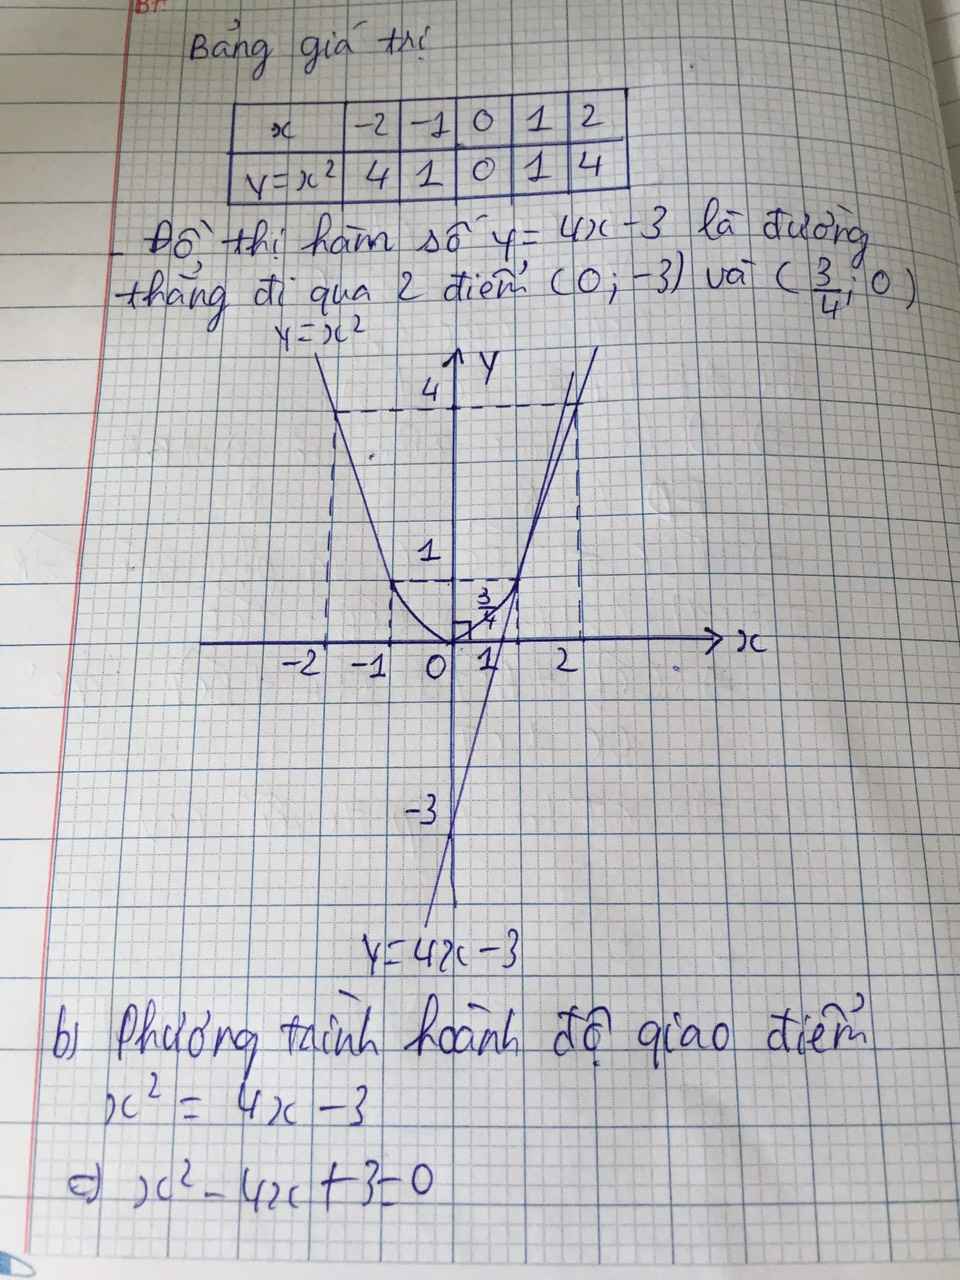 BT
Bảng giá trị
x -2 -1 0 1 2
y=x² 4 1 0 1 4
- Đồ thị hàm số y= 4x-3 là đường
thẳng đi qua 2 điểm (0;-3) và (3/4;0)
y=x²
y
4
1
3/4
-2 -1 0 1 2 x
-3
y=4x-3
b) Phương trình hoành độ giao điểm
x² = 4x -3
⇔ x² - 4x +3=0